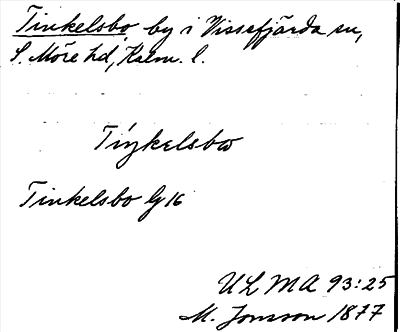 Tinkelsbo by i Vissefjärda sn,
S. Möre hd, Kalm. l.
Tinkelsbo Gg 16
ULMA 93:25
M. Jonsson 1877